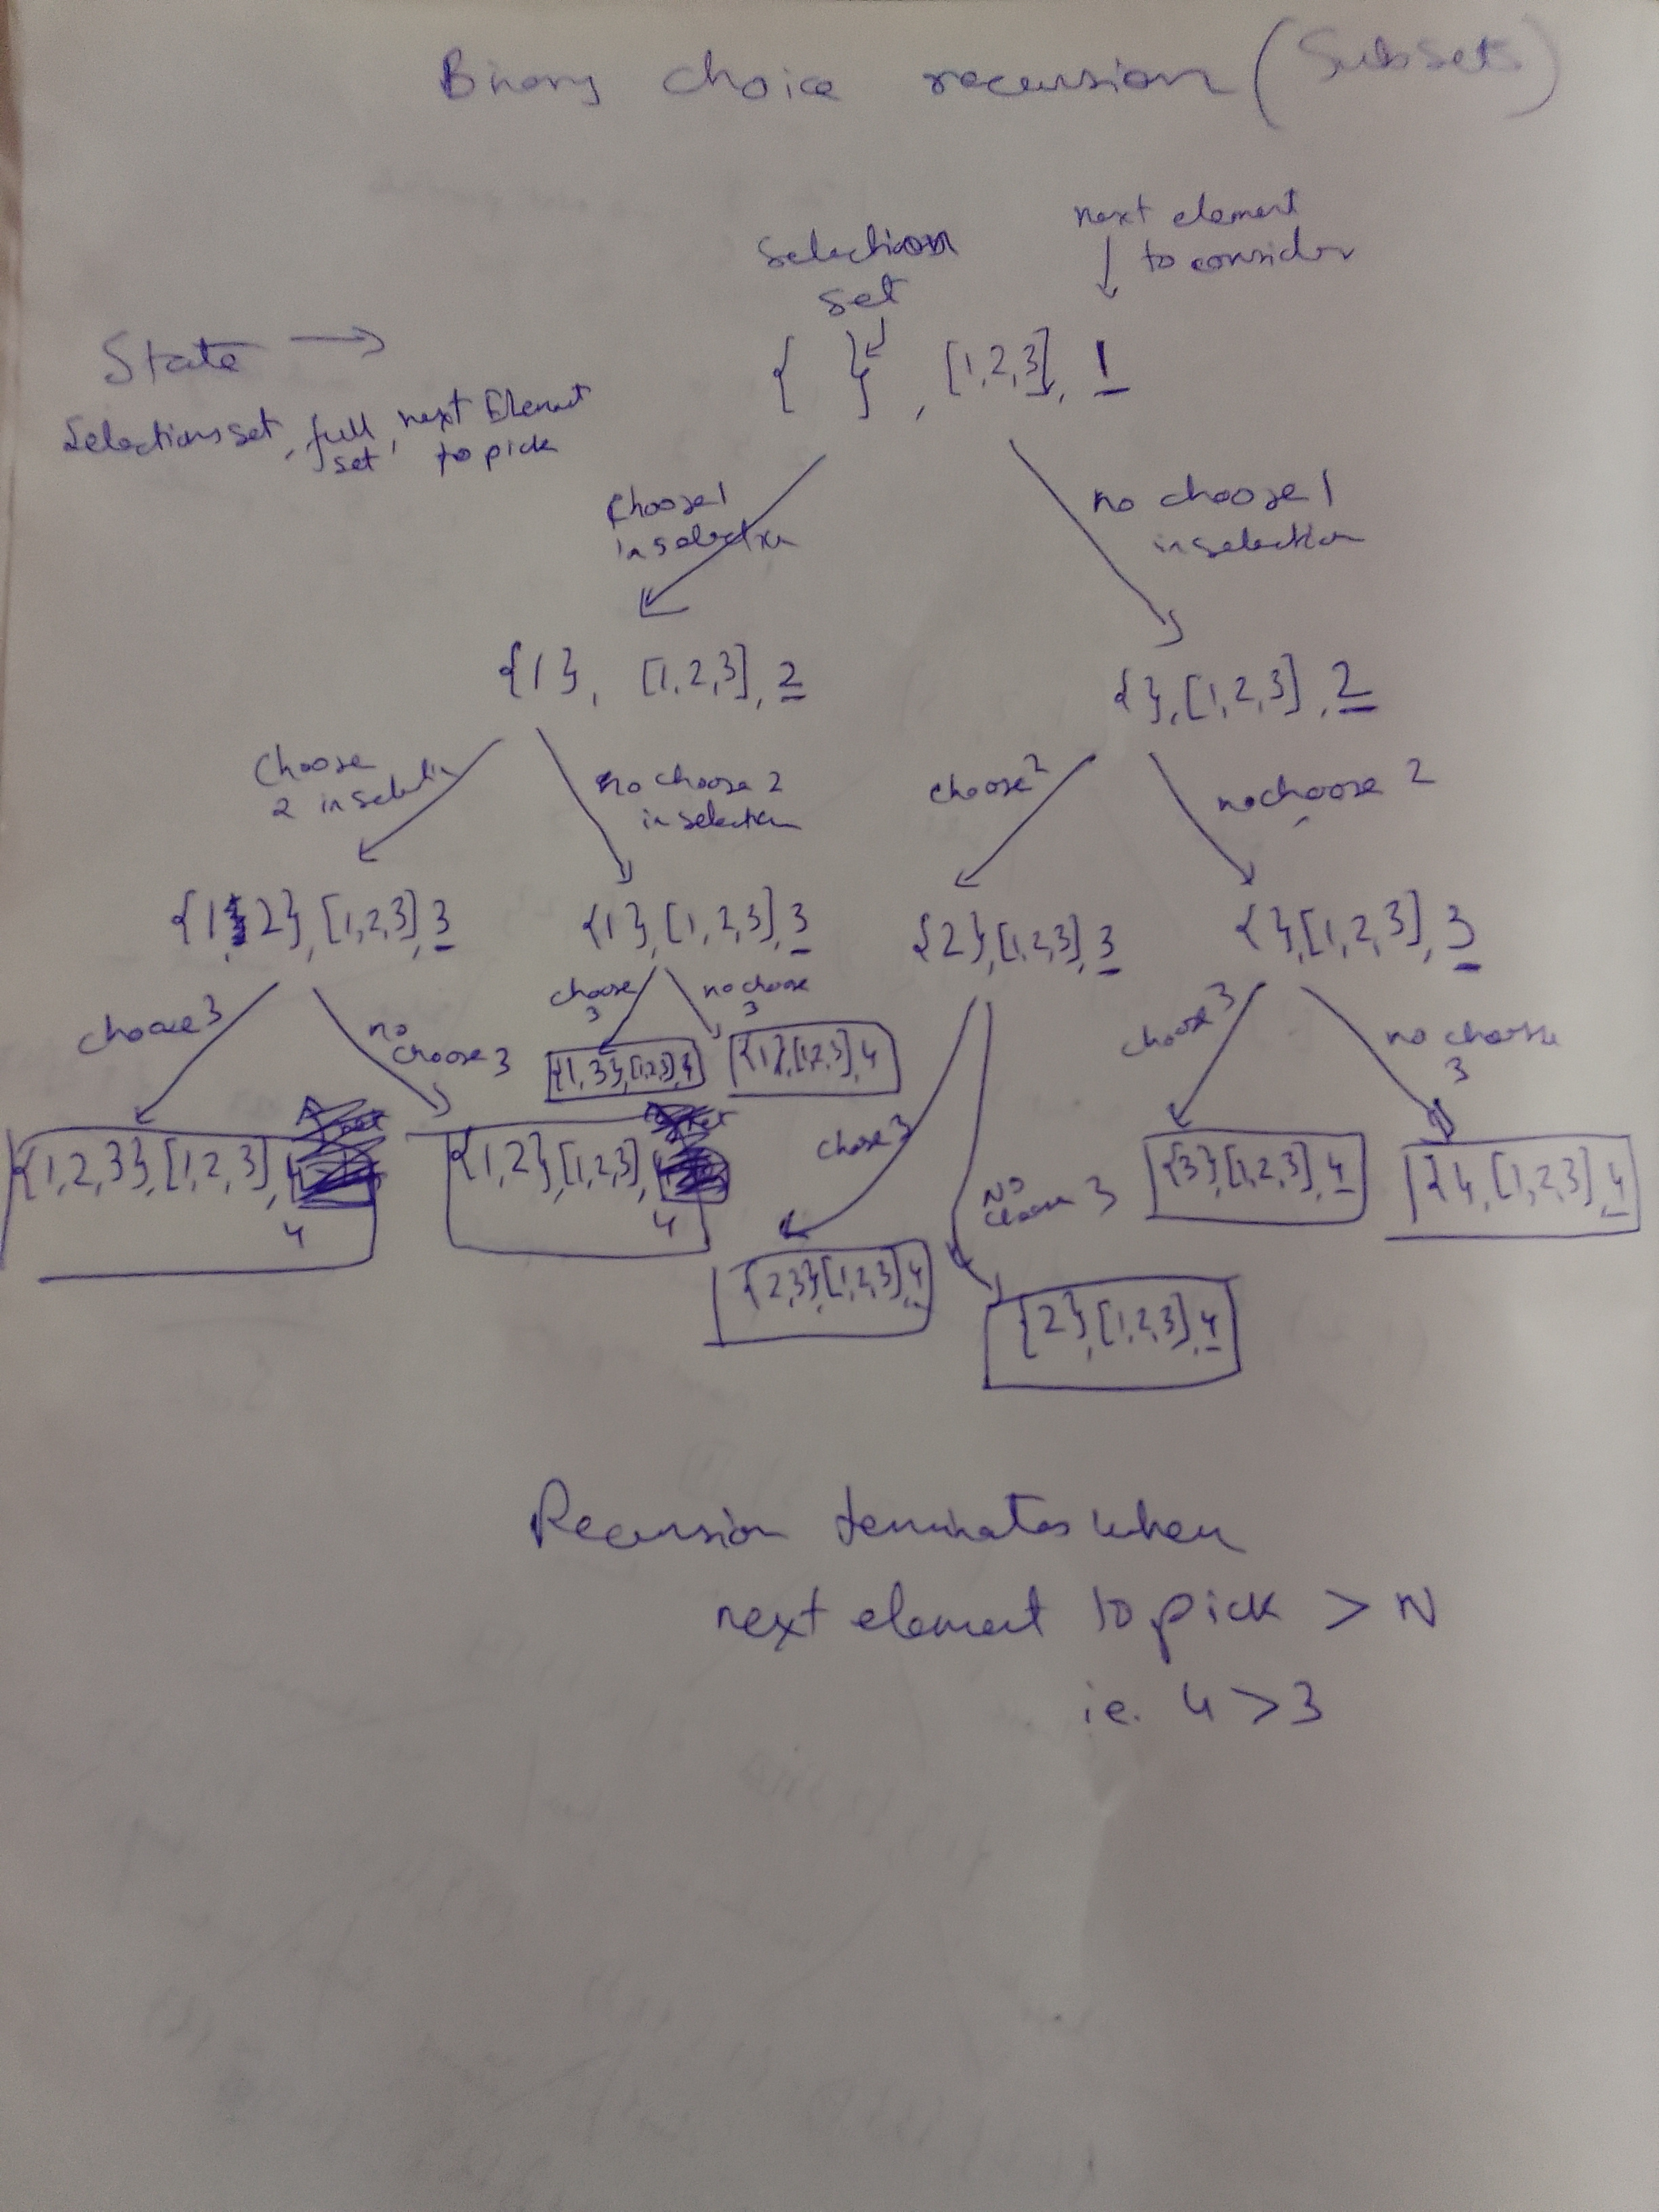 Binary choice recursion (Subsets)
selection
set
next element
to consider
State →
Selections set, full set, next Element to pick
{ }, [1,2,3], 1
Choose 1
in selection
no choose 1
in selection
{1}, [1,2,3], 2
{}, [1,2,3], 2
Choose
2 in selectin
no choose 2
in selection
choose 2
no choose 2
{1,2}, [1,2,3], 3
{1}, [1,2,3], 3
{2}, [1,2,3], 3
{}, [1,2,3], 3
choose 3
no
choose 3
choose
3
no choose
3
choose 3
no choose
3
{1,3}, [1,2,3], 4
{1}, [1,2,3], 4
{1,2,3}, [1,2,3], 4
{1,2}, [1,2,3], 4
chose 3
No
choose 3
{3}, [1,2,3], 4
{}, [1,2,3], 4
{2,3}, [1,2,3], 4
{2}, [1,2,3], 4
Recursion terminates when
next element to pick > N
ie. 4 > 3